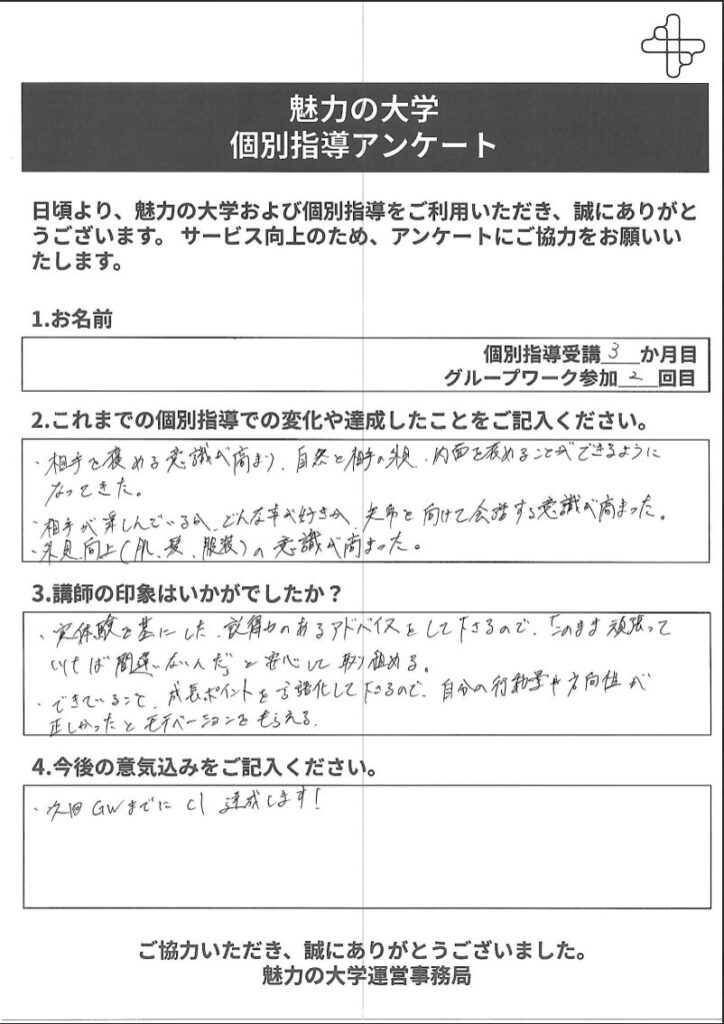 魅力の大学
個別指導アンケート
日頃より、魅力の大学および個別指導をご利用いただき、誠にありがと
うございます。 サービス向上のため、アンケートにご協力をお願いい
たします。
1.お名前
個別指導受講 3 か月目
グループワーク参加 2 回目
2.これまでの個別指導での変化や達成したことをご記入ください。
・相手を褒める意識が高まり、自然と相手の外見、内面を褒めることができるように
なってきた。
・相手が楽しんでいるか、どんな事が好きか、矢印を向けて会話する意識が高まった。
・外見向上(肌、髪、服装)の意識が高まった。
3.講師の印象はいかがでしたか？
・実体験を基にした、説得力のあるアドバイスをして下さるので、「このまま頑張って
いけば間違いないんだ」と安心して取り組める。
・できていること、成長ポイントを言語化して下さるので、自分の行動量や方向性が
正しかったとモチベーションをもらえる。
4.今後の意気込みをご記入ください。
・次回GWまでに c1 達成します!
ご協力いただき、誠にありがとうございました。
魅力の大学運営事務局